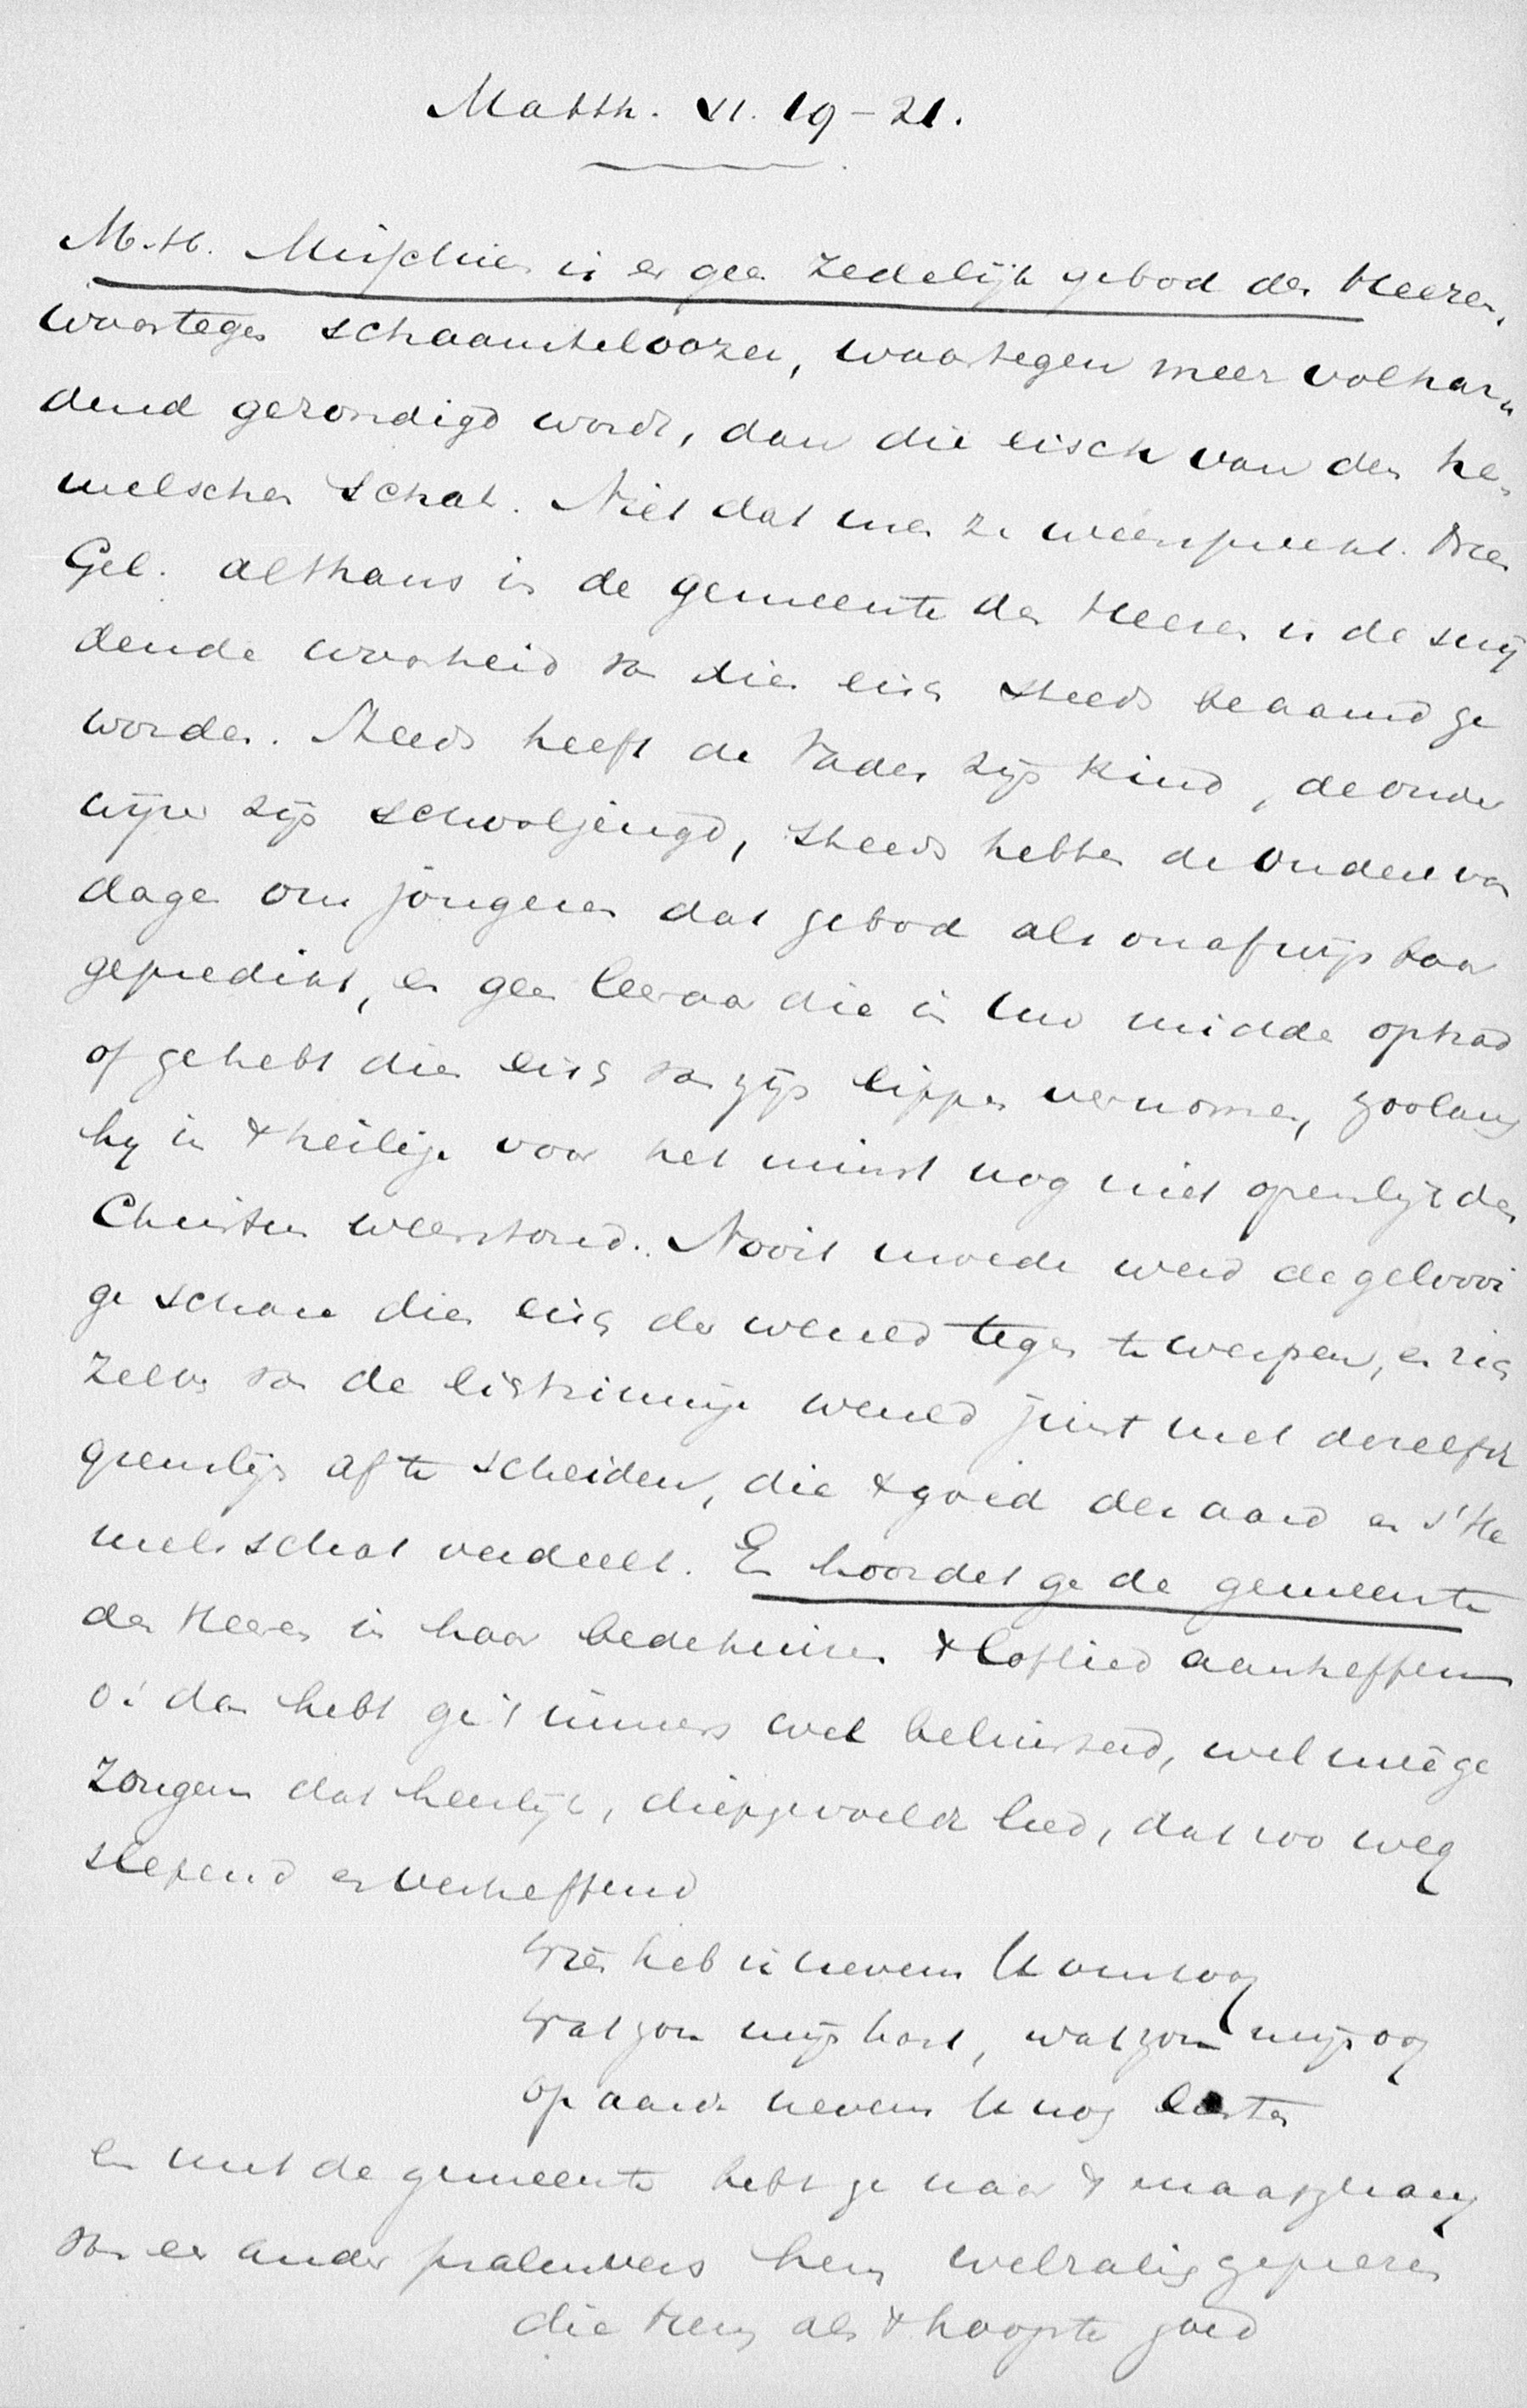 Matth. VI. 19-21.
M.H. Misschien is er geen zedelijk gebod des Heeren,
waartegen schaamteloozer, waartegen meer volhar„
dend gezondigd wordt, dan die eisch van den he„
melschen schat. Niet dat men ze weerspreekt. Neen
Gel. althans in de gemeente des Heeren is de snij
dende waarheid van dien eisch steeds beaamd ge
worden. Steeds heeft de Vader zijn kind, de onder
wijzer zijn schooljeugd, steeds hebben de ouden van
dagen ons jongeren dat gebod als onafwijsbaar
gepredikt, en geen leeraar die in uw midden optrad
of ge hebt dien eisch van zijn lippen vernomen, zoolang
hij in 't heilige voor het minst nog niet openlijk den
Christus weerstond. Nooit moede werd de geloovi
ge schare dien eisch der wereld tegen te werpen, en zich
zelve van de lichtzinnige wereld juist met dezelfde
grenslijn af te scheiden, die 't goed der aard en 's He
mels schat verdeelt. En hoordet ge de gemeente
des Heeren in haar bedehuizen 't loflied aanheffen
o! dan hebt ge 't immers wel beluisterd, wel meêge
zongen dat heerlijk, diepgevoelde lied, dat zoo weg
slepend en verheffend
Wien heb ik nevens U omhoog
Wat zou mijn hart, wat zou mijn oog
op aarde nevens U nog lusten
en met de gemeente hebt ge naar 't maatgezang
van een ander psalmvers hem welzalig geprezen
die Hem als 't hoogste goed